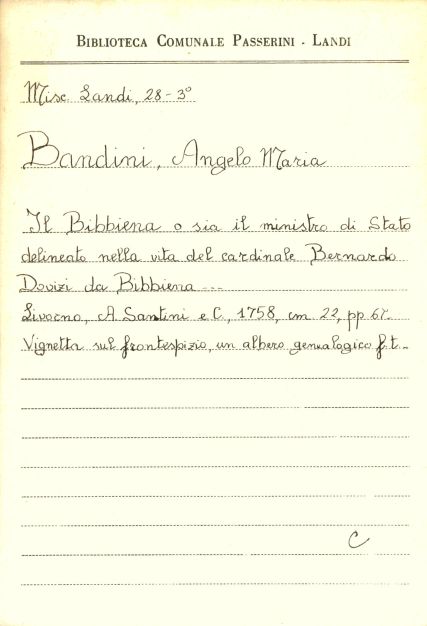 BIBLIOTECA COMUNALE PASSERINI - LANDI
Misc Landi, 28-3°
Bandini, Angelo Maria
Il Bibbiena o sia il ministro di Stato
delineato nella vita del cardinale Bernardo
Dovizi da Bibbiena ...
Livorno, A Santini e C, 1758, cm 22, pp
Vignetta sul frontespizio, un albero genealogico f.t.
C